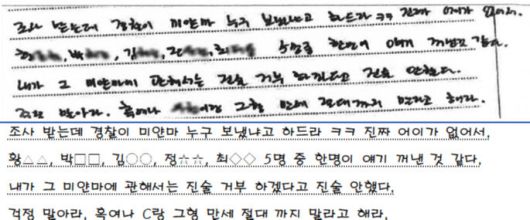 조사 받는데 경찰이 미얀마 누구 보냈냐고 하드라 ㅋㅋ 진짜 어이가 없어서.
황 , 박 , 김 , 정 , 최 5명중 한명이 얘기 꺼낸것 같다.
내가 그 미얀마에 관해서는 진술 거부 하겠다고 진술 안했다.
걱정 말아라. 혹여나 그형 만세 절대까지 말라고 해라.
조사 받는데 경찰이 미얀마 누구 보냈냐고 하드라 ㅋㅋ 진짜 어이가 없어서,
황△△, 박□□, 김○○, 정☆☆, 최◇◇ 5명 중 한명이 얘기 꺼낸 것 같다,
내가 그 미얀마에 관해서는 진술 거부 하겠다고 진술 안했다,
걱정 말아라, 혹여나 C랑 그형 만세 절대 까지 말라고 해라,